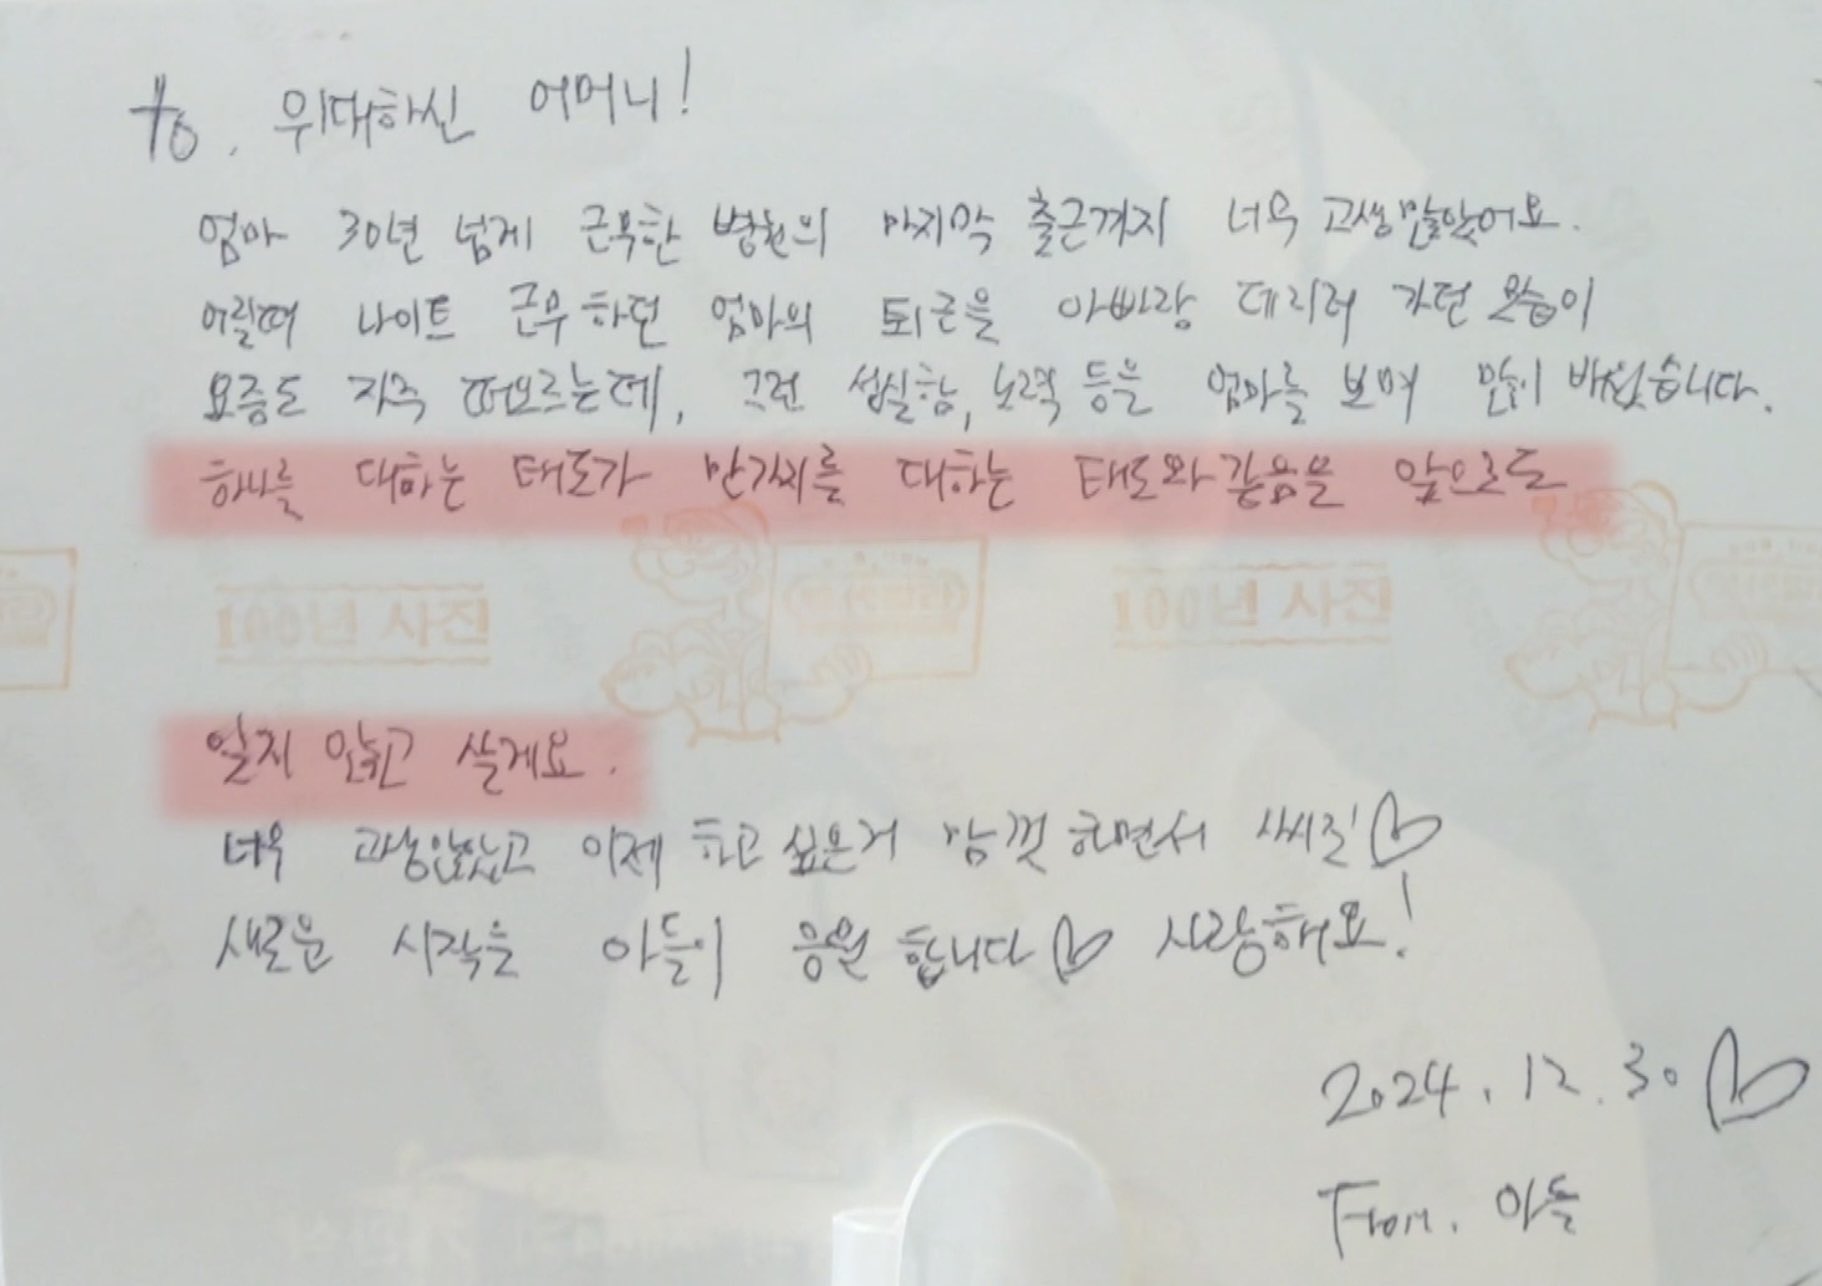 to. 위대하신 어머니!
엄마 30년 넘게 근무한 병원의 마지막 출근까지 너무 고생 많았어요.
어릴때 나이트 근무하던 엄마의 퇴근을 아빠랑 데리러 가던 모습이
요즘도 자주 떠오르는데, 그런 성실함, 노력 등을 엄마를 보며 많이 배웠습니다.
하나를 대하는 태도가 만가지를 대하는 태도와 같음을 앞으로도
100년 사진
100년 사진
잊지 않고 살게요.
너무 고생많았고 이제 하고 싶은거 맘껏 하면서
새로운 시작을 아들이 응원합니다♡ 사랑해요!
2024. 12. 30♡
From. 아들